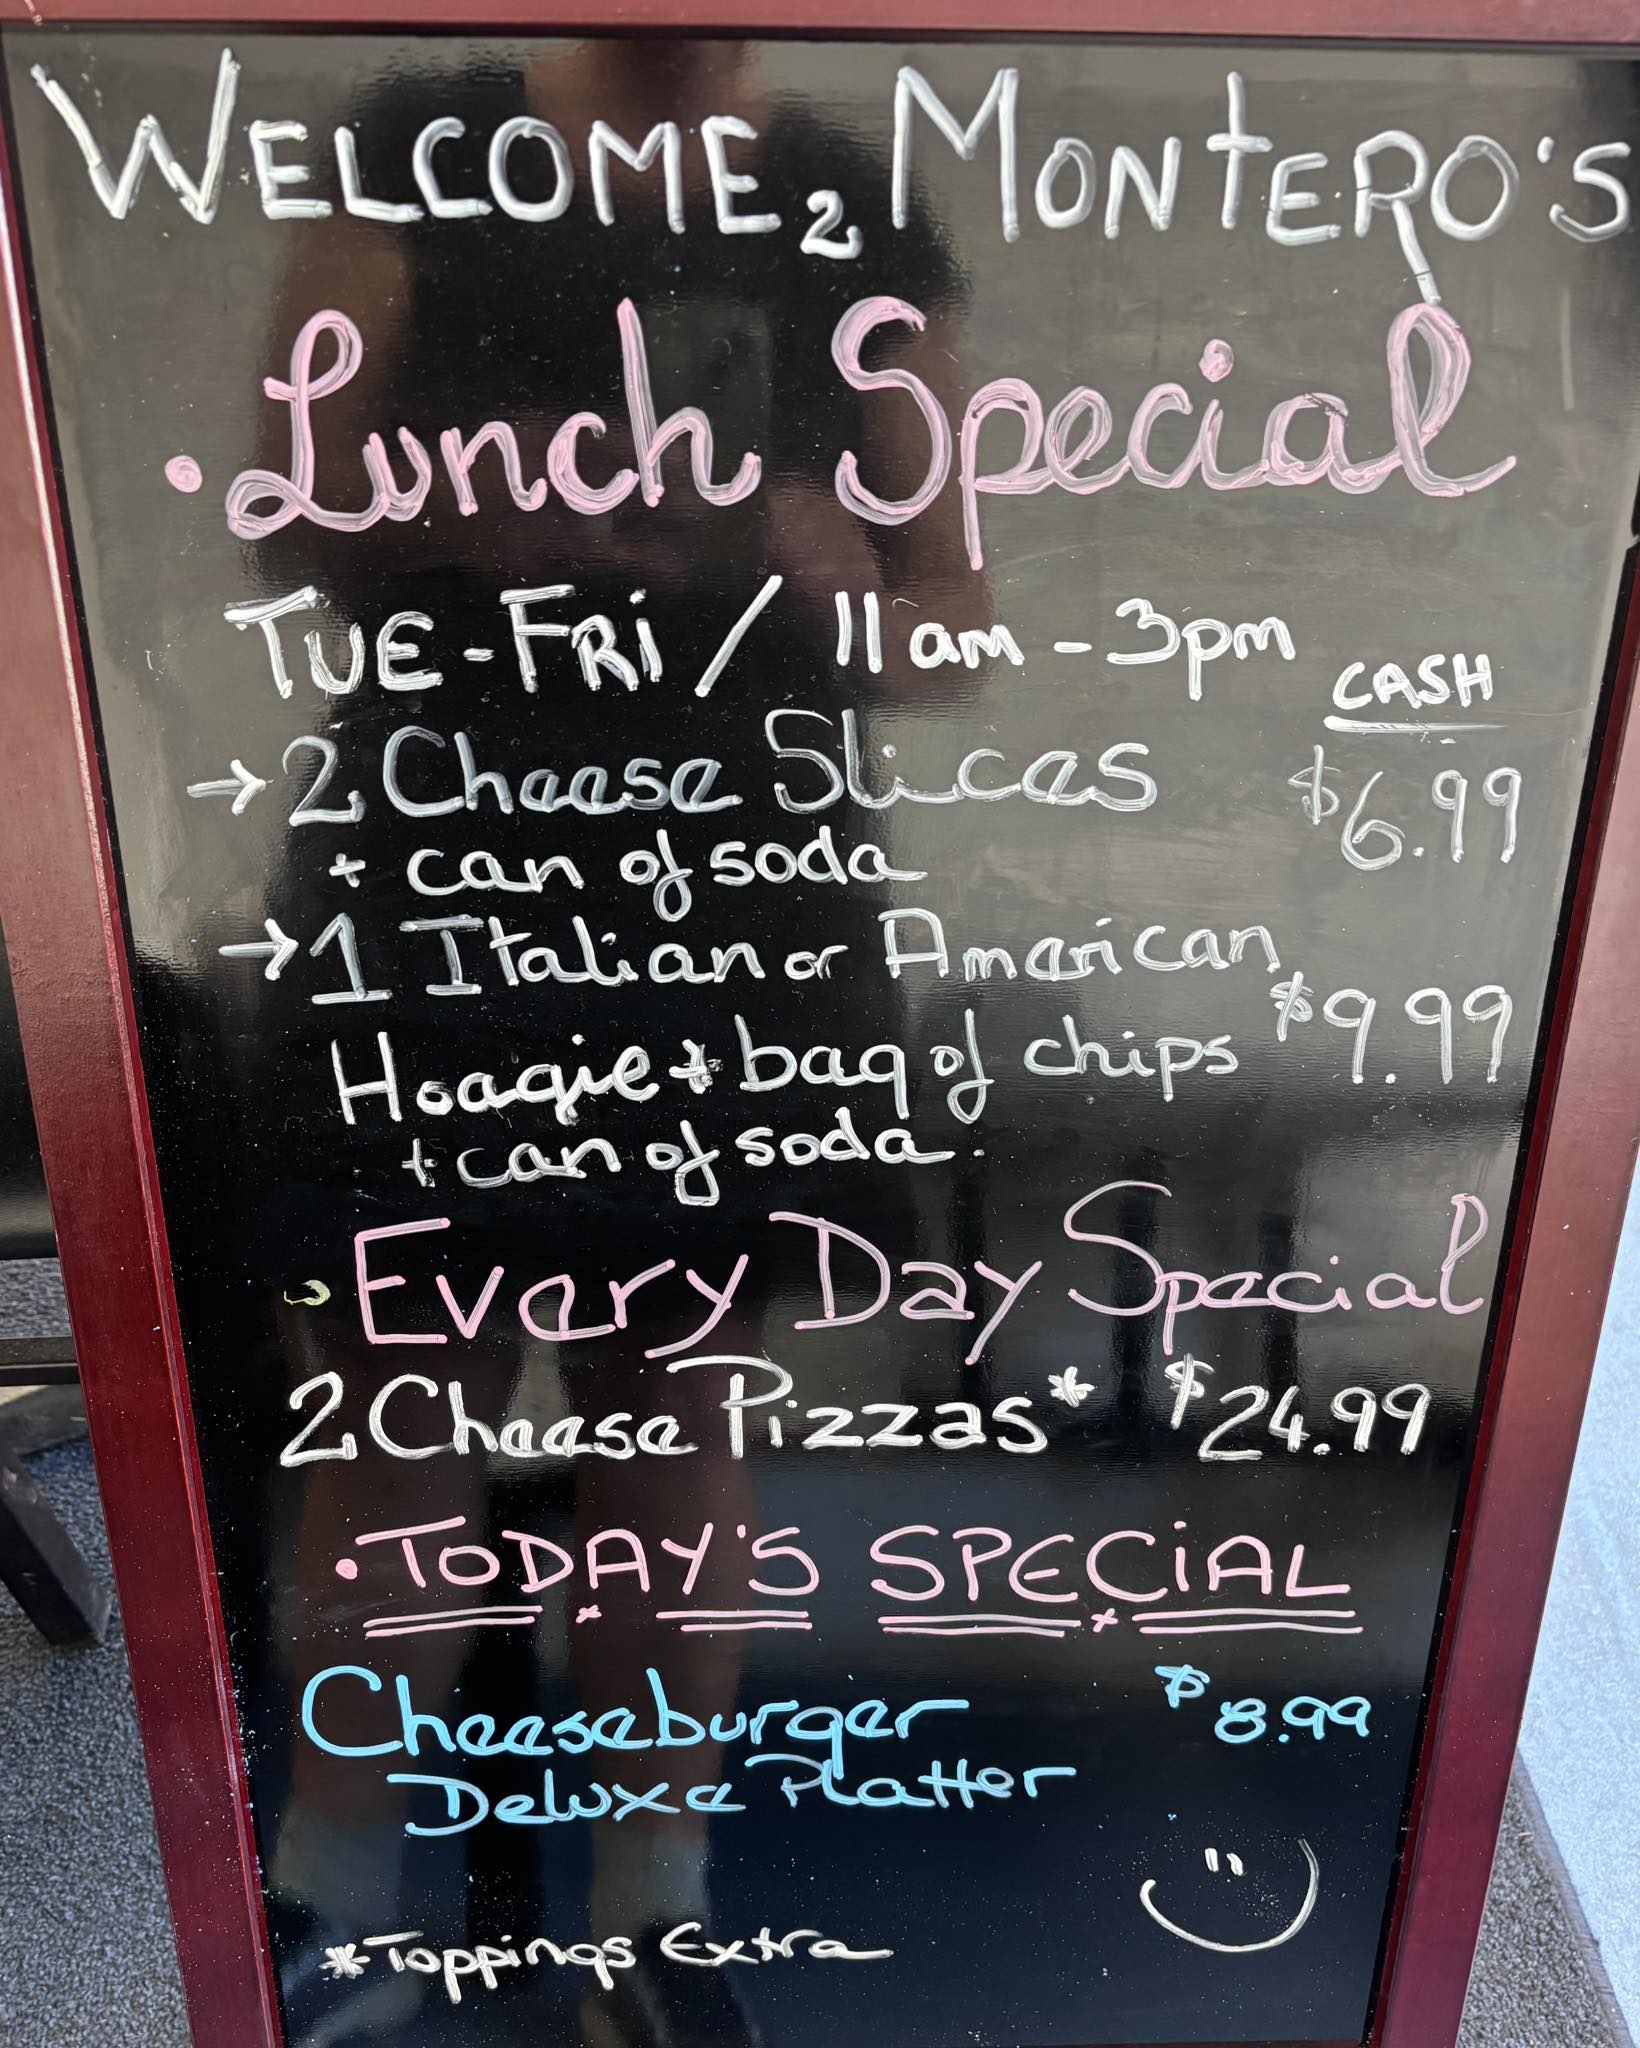 WELCOME 2 MONTERO'S
• Lunch Special
TUE-FRi / 11am - 3pm
CASH
→ 2 Cheese Slices $6.99
+ can of soda
→ 1 Italian or American
Hoagie + bag of chips $9.99
+ can of soda.
• Every Day Special
2 Cheese Pizzas* $24.99
• TODAY'S SPECiAL
Cheeseburger $8.99
Deluxe Platter
*Toppings Extra